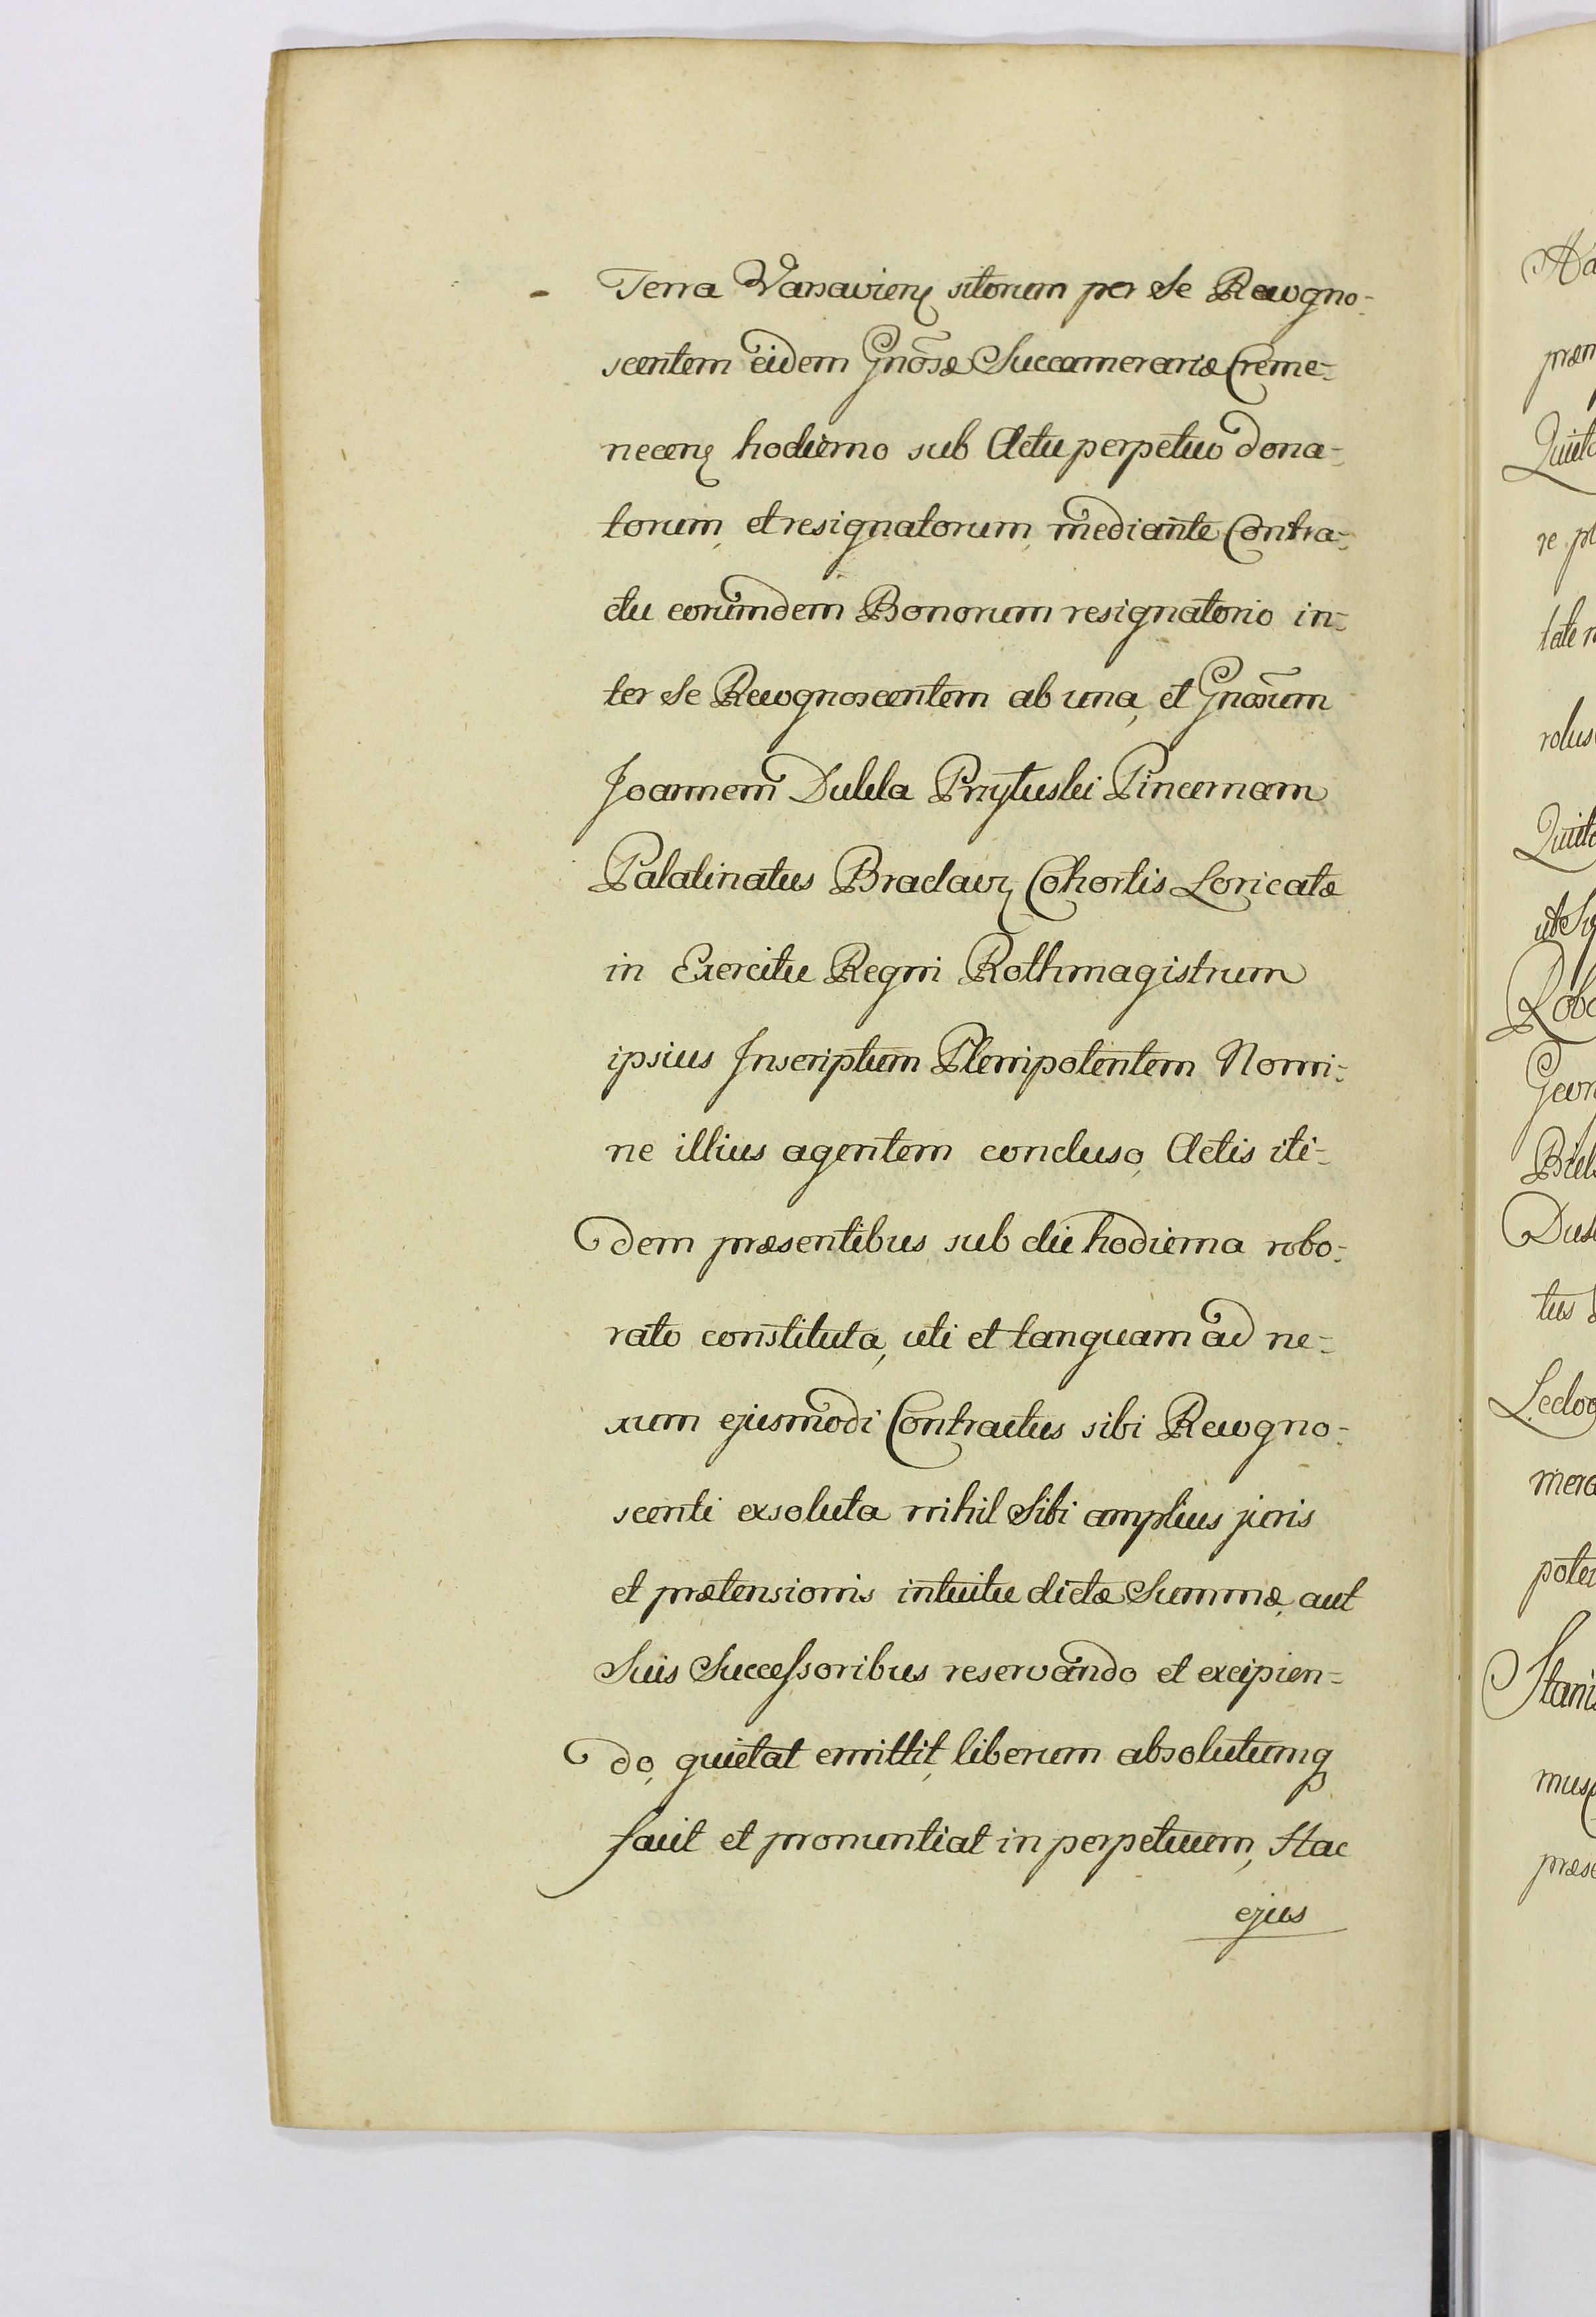 Terra Varsavieng sitorum per Se Recogno-
scentem eidem Gnõsæ Succamerariæ Creme-
neceng hodierno sub Actu perpetuo dona-
torum, et resignatorum, mediante Contra-
ctu eorumdem Bonorum resignatorio in-
ter Se Recognoscentem ab una, et Gnõsum
Joannem Dulila Przyłuski Pincernam
Palatinatus Braclavg Cohortis Loricatæ
in Exercitu Regni Rothmagistrum
ipsius Inscriptum Plenipotentem Nomi-
ne illius agentem concluso, Actis iti-
dem præsentibus sub die hodierna robo-
rato constituta, uti et tanquam ad ne-
xum ejusmodi Contractus sibi Recogno-
scenti exsoluta nihil Sibi amplius juris
et prætensionis intuitu dictæ Summæ, aut
Suis Successoribus reservando et excipien-
do, quietat emittit, liberum absolutumq
facit et pronuntiat in perpetuum, Hac
ejus
præm
Quit
re
rolus
Quit
Robo
Geor
tus
mera
poten
Stanis
præse